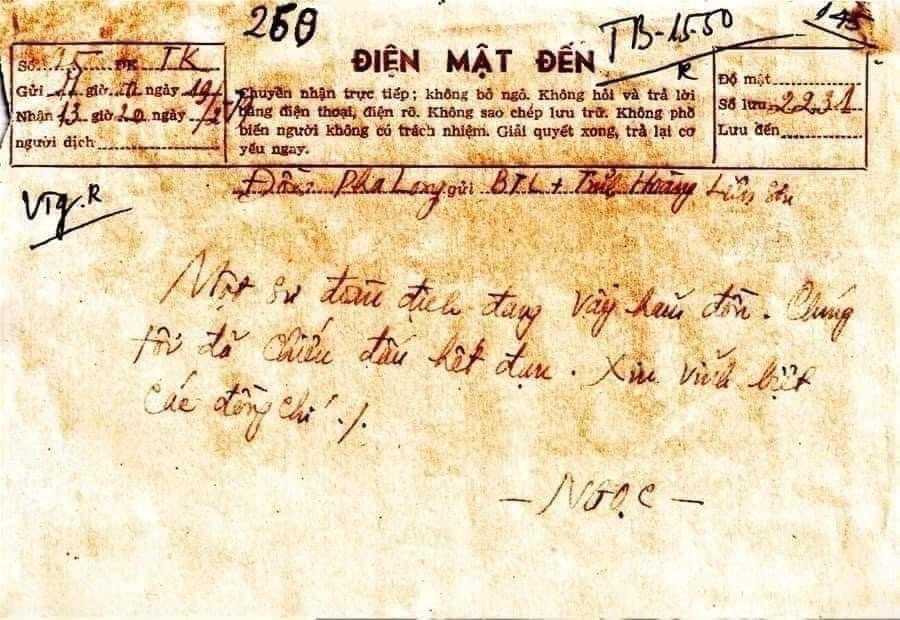 250
TB-15.50
R
145
Số 15 ĐK TK
Gửi 11 giờ 11 ngày 19/
Nhận 13 giờ 20 ngày
người dịch
ĐIỆN MẬT ĐẾN
Chuyển nhận trực tiếp; không bỏ ngỏ. Không hỏi và trả lời
bằng điện thoại, điện rõ. Không sao chép lưu trữ. Không phổ
biến người không có trách nhiệm. Giải quyết xong, trả lại cơ
yếu ngay.
Độ mật
Số lưu 2231
Lưu đến
Đồn: Pha Long gửi BTL + Tỉnh Hoàng Liên Sơn
Vtg.R
Một sư đoàn địch đang vây hãm đồn. Chúng
tôi đã chiến đấu hết đạn. Xin vĩnh biệt
các đồng chí ./.
— NGỌC —